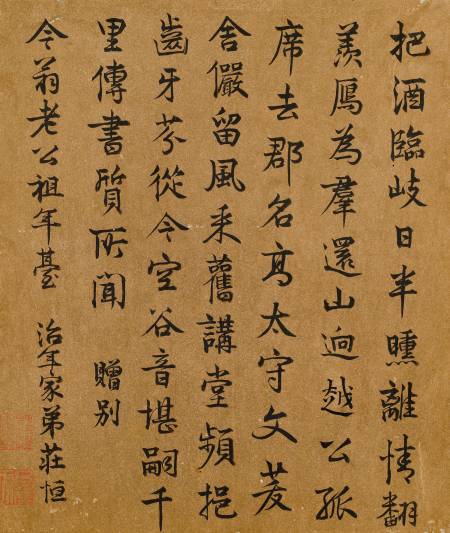 把酒臨岐日半曛離情翻
羨鴈為羣還山迥越公孤
席去郡名高太守文茇
舍儼留風采舊講堂頻挹
齒牙芬從今空谷音堪嗣千
里傳書質所聞 贈別
今翁老公祖年臺 治年家弟莊恒